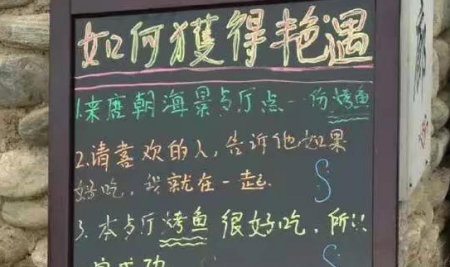 如何獲得艳遇
1.来唐朝海景歺厅点一份烤鱼
2.请喜欢的人,告诉他如果
好吃,我就在一起.
3.本歺厅烤鱼很好吃,所以